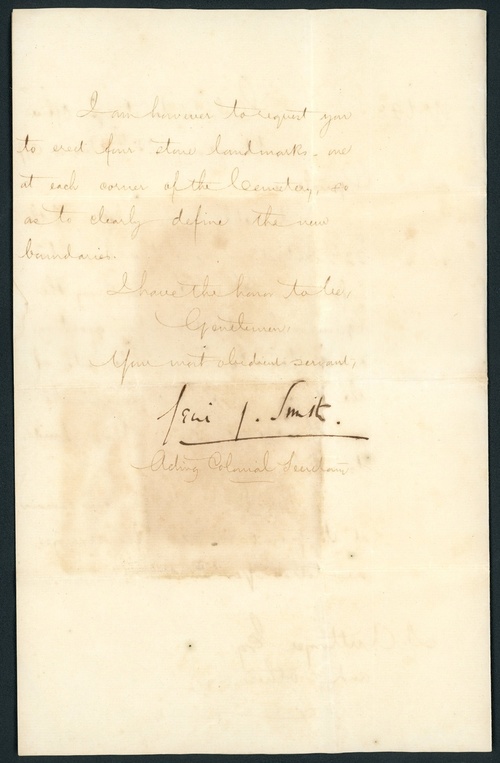 I am however to request you
to erect four stone landmarks, one
at each corner of the Cemetery, so
as to clearly define the new
boundaries.
I have the honor to be,
Gentlemen,
Your most obedient servant,
J. Smith.
Acting Colonial Secretary.